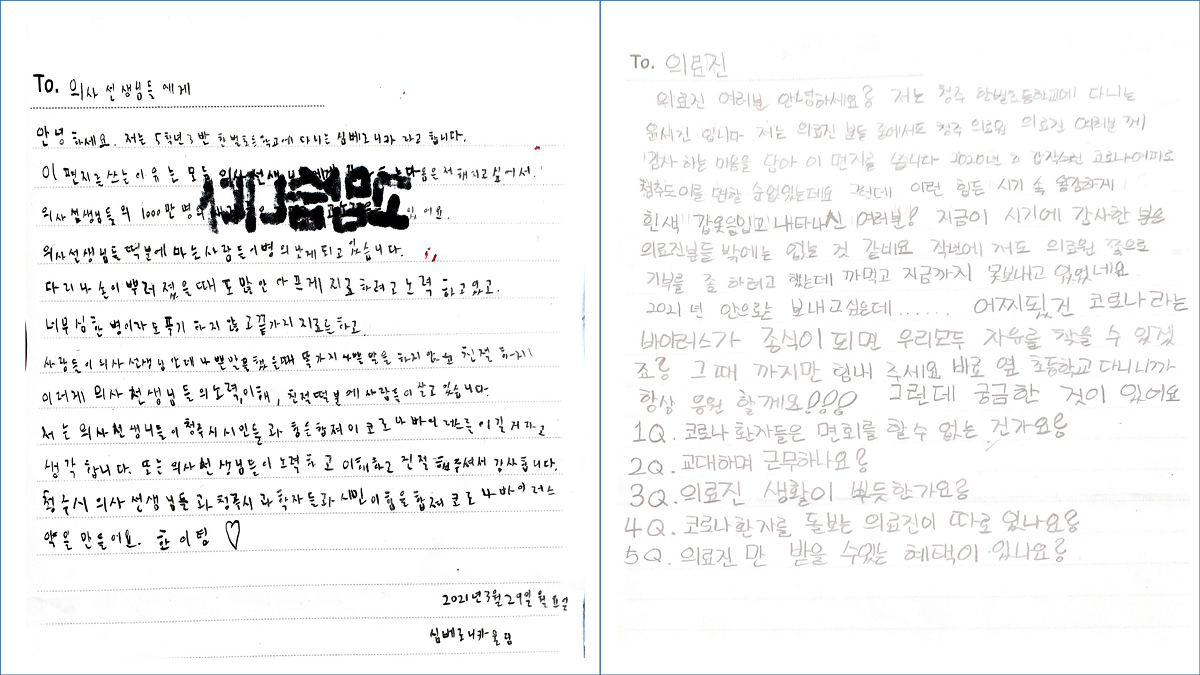 To. 의사 선생님들 에게
안녕하세요. 저는 5학년 3반 한벌초등학교에 다니는 심베로니카 라고 합니다.
이 편지를 쓰는 이유는 모든 의사 선생 전해지고 싶어서.
의사 선생님들의 1000만 명의 있어요.
의사선생님들 떡분에 마는 사람들이 병의 낫게 되고 있습니다.
다리나 손이 뿌러 졌을때 또 많 안 아프게 지료하려고 노력 하고있고.
너무 심한 병이라도 푸기 하지 않고 끝가지 지료를 하고
사람들이 의사 선생님 한데 나쁜말로 했을때 똑가지 나쁜 말을 하지 안고 친절 하게!
이러게 의사 선생님들의 노력, 이해, 친절떡분에 사람들이 살고 있습니다.
저는 의사선생님들이 청주시 시인들과 힘을합쳐 이 코로나 바이러스를 이길거라고
생각 합니다. 또는 의사 선생님들이 노력하고 이해하고 친절 해주셔서 감사합니다.
청주시 의사 선생님들 과 청주시 과학자들과 시민이 힘을 합쳐 코로나바이러스
약을 만들어요. 화이팅 ♡
2021년 3월 29일 월요일
심베로니카 올림
To. 의료진
의료진 여러분 안녕하세요? 저는 청주 한벌초등학교에 다니는
윤시진 입니다 저는 의료진 분들 중에서도 청주 의료원 의료진 여러분 께
감사 하는 마음을 담아 이 편지를 씁니다 2020년에 갑작스런 코로나어피로
청주도 이를 면할 순없었는데요 그런데 이런 힘든 시기 속 웅장하게
흰색 갑옷을입고 나타나신 여러분! 지금이 시기에 감사한 분은
의료진분들 밖에는 없는 것 같네요 작년에 저도 의료원 쪽으로
기부를 좀 하려고 했는데 까먹고 지금까지 못보내고 있었네요
2021년 안으로는 보내고싶은데...... 어찌됬건 코로나 라는
바이러스가 종식이 되면 우리모두 자유를 찾을 수 있겠
죠? 그 때 까지만 힘내 주세요 바로 옆 초등학교 다니니까
항상 응원 할께요!!! 그런데 궁금한 것이 있어요
1Q. 코로나 환자들은 면회를 할 수 없는 건가요?
2Q. 교대하며 근무하나요?
3Q. 의료진 생활이 뿌듯한가요?
4Q. 코로나환자를 돌보는 의료진이 따로 있나요?
5Q. 의료진 만 받을 수있는 혜택이 있나요?